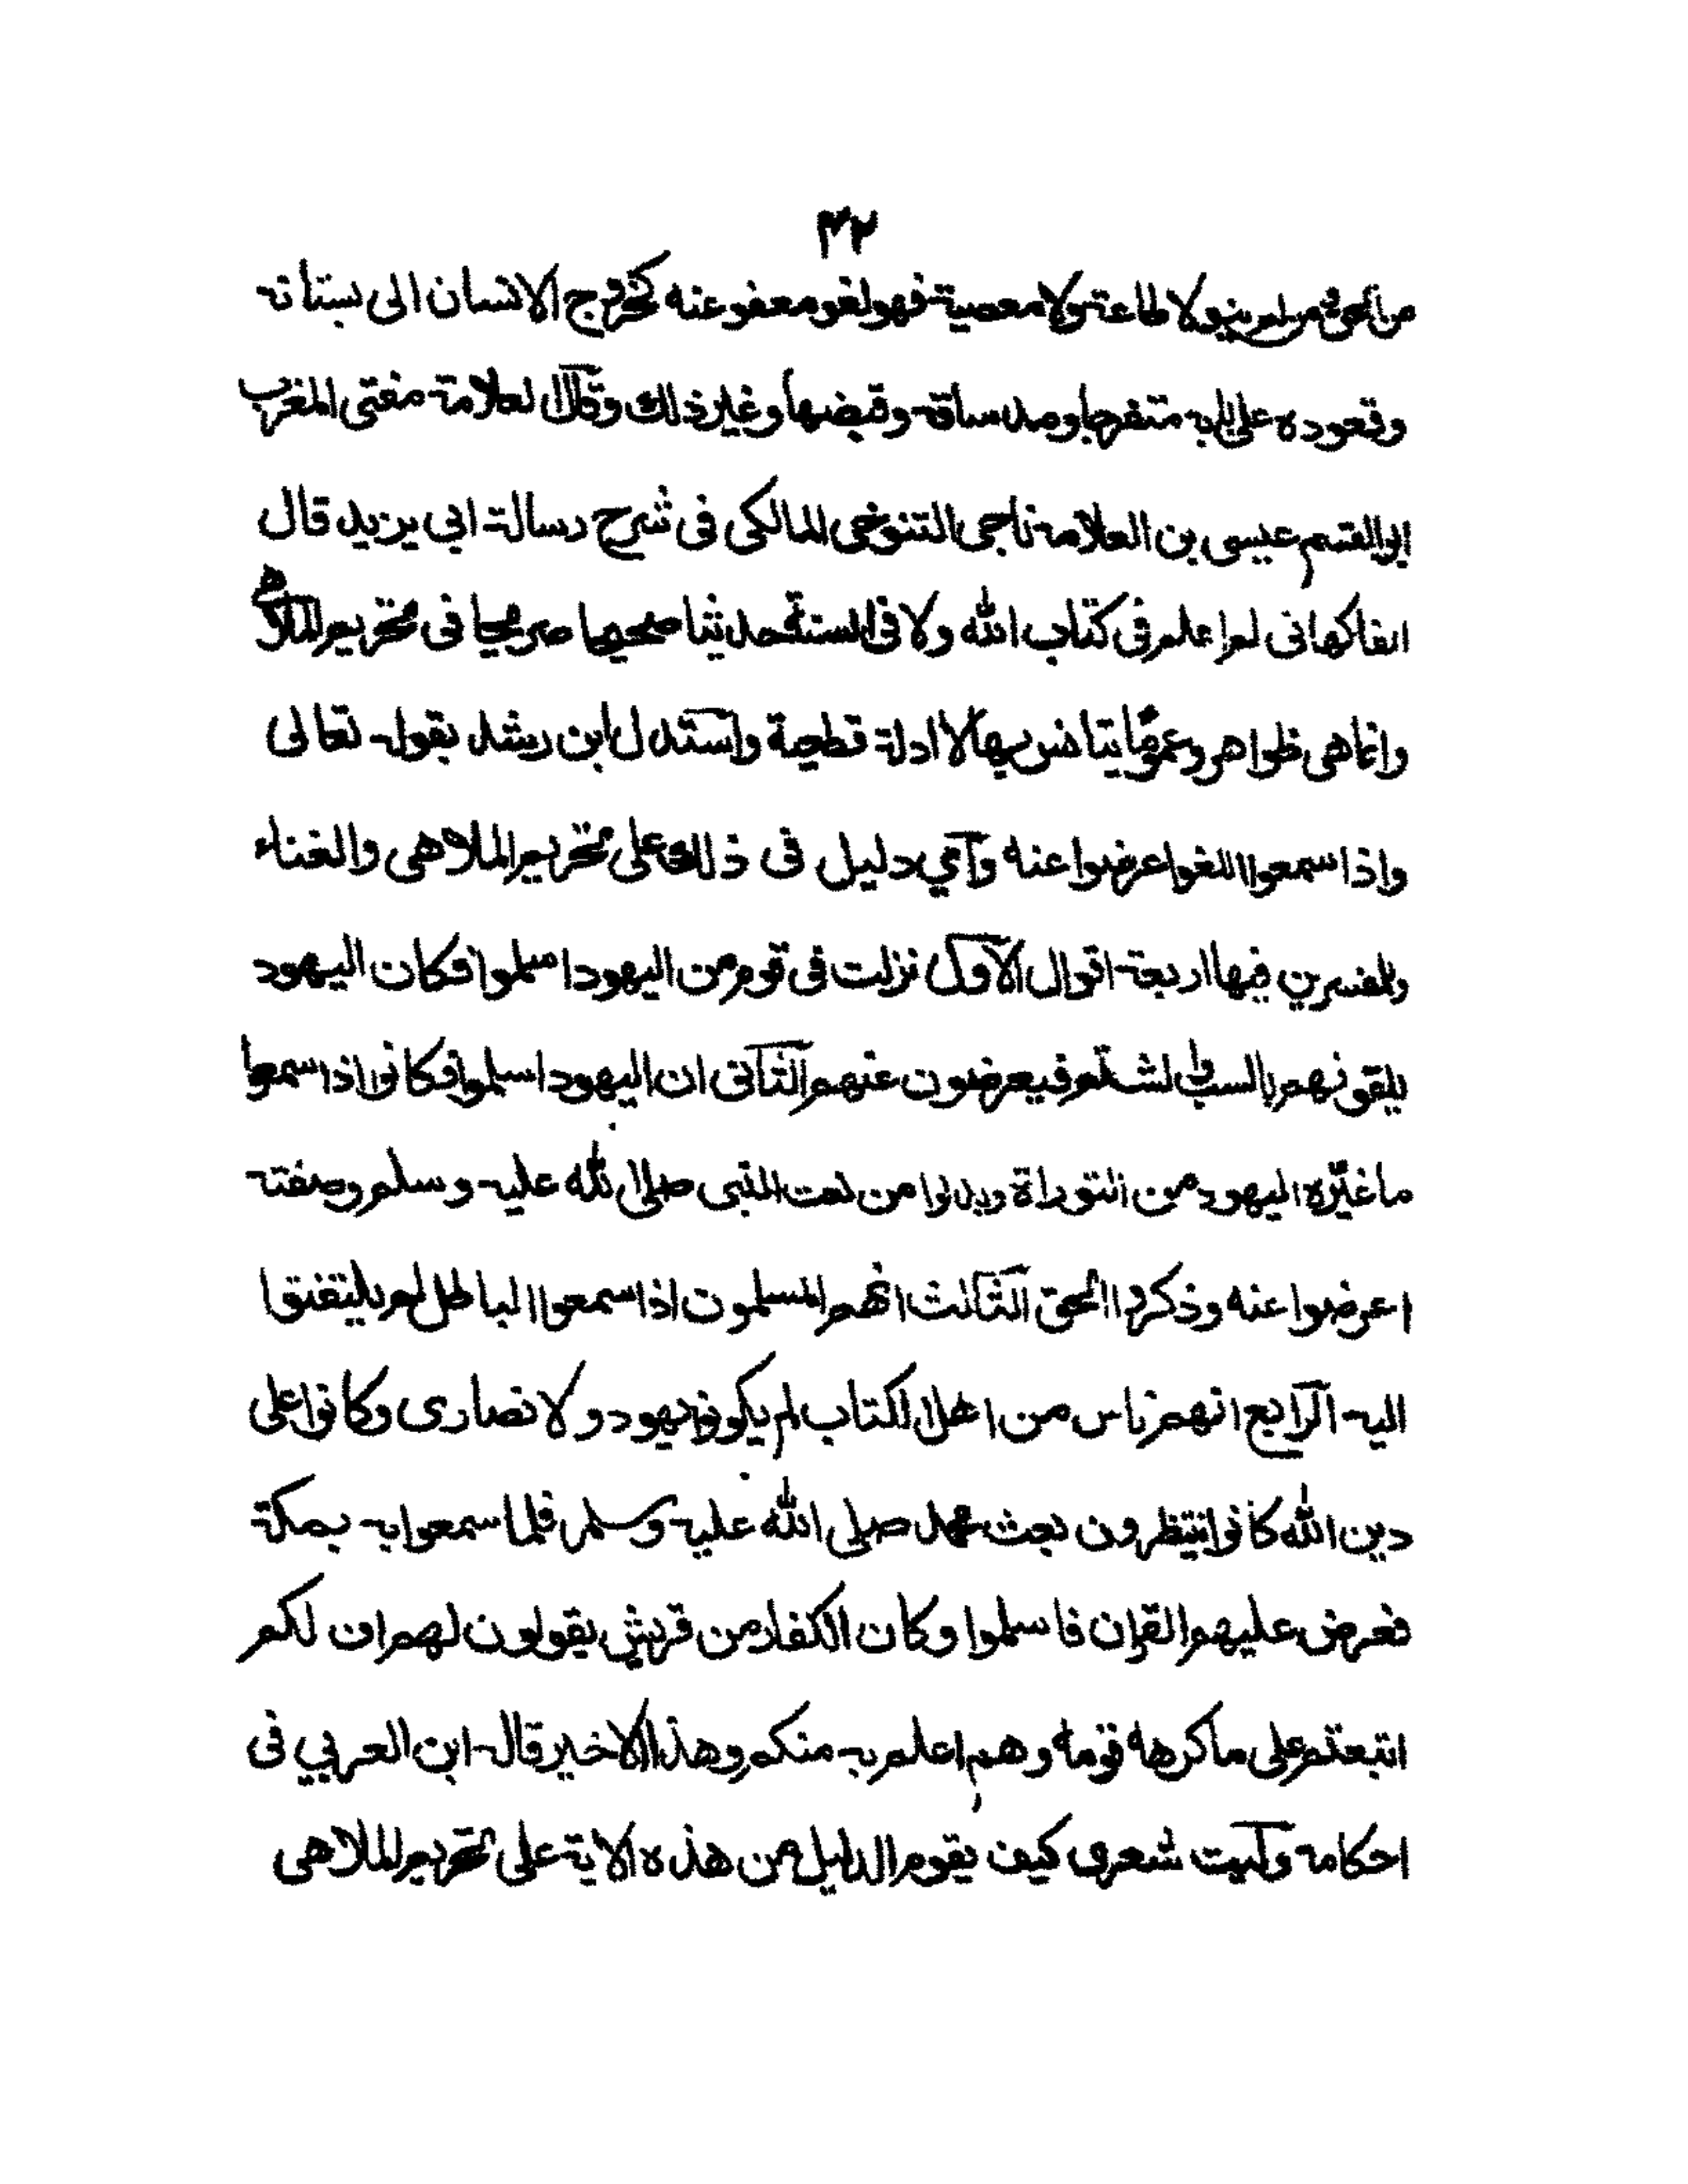 ٣٢
ولا طاعة ولا معصية فهو لغو معفو عنه كخروج الانسان الى بستانه
وقعوده على بابه متفرجا ومد ساقه وقبضها وغير ذلك وقال العلامة مفتى المغرب
ابو القسم عيسى بن العلامة ناجى التنوخى المالكى فى شرح رسالة ابي يزيد قال
الفاكهانى لم اعلم فى كتاب الله ولا فى السنة حديثا صحيحا صريحا فى تحريم الملاهى
وانما هى ظواهر وعموما يتانس بها لا ادلة قطعية واستدل ابن رشد بقوله تعالى
واذا سمعوا اللغو اعرضوا عنه وآي دليل فى ذلك على تحريم الملاهى والغناء
وللمفسرين فيها اربعة اقوال الآول نزلت فى قوم من اليهود اسلموا فكان اليهود
يلقونهم بالسب والشتم فيعرضون عنهم الثانى ان اليهود اسلموا فكانوا اذا سمعوا
ما غيّره اليهود من التوراة وبدلوا من نعت النبى صلى الله عليه وسلم وصفته
اعرضوا عنه وذكروا الحق الثالث انهم المسلمون اذا سمعوا الباطل لم يلتفتوا
اليه الرابع انهم ناس من اهل الكتاب لم يكونوا يهود ولا نصارى وكانوا على
دين الله كانوا ينتظرون بعث محمد صلى الله عليه وسلم فلما سمعوا به بمكة
فعرض عليهم القران فاسلموا وكان الكفار من قريش يقولون لهم اف لكم
اتبعتم على ما كرهه قومه وهم اعلم به منكم وهذا الاخير قاله ابن العربي فى
احكامه وليت شعرى كيف يقوم الدليل من هذه الاية على تحريم الملاهى